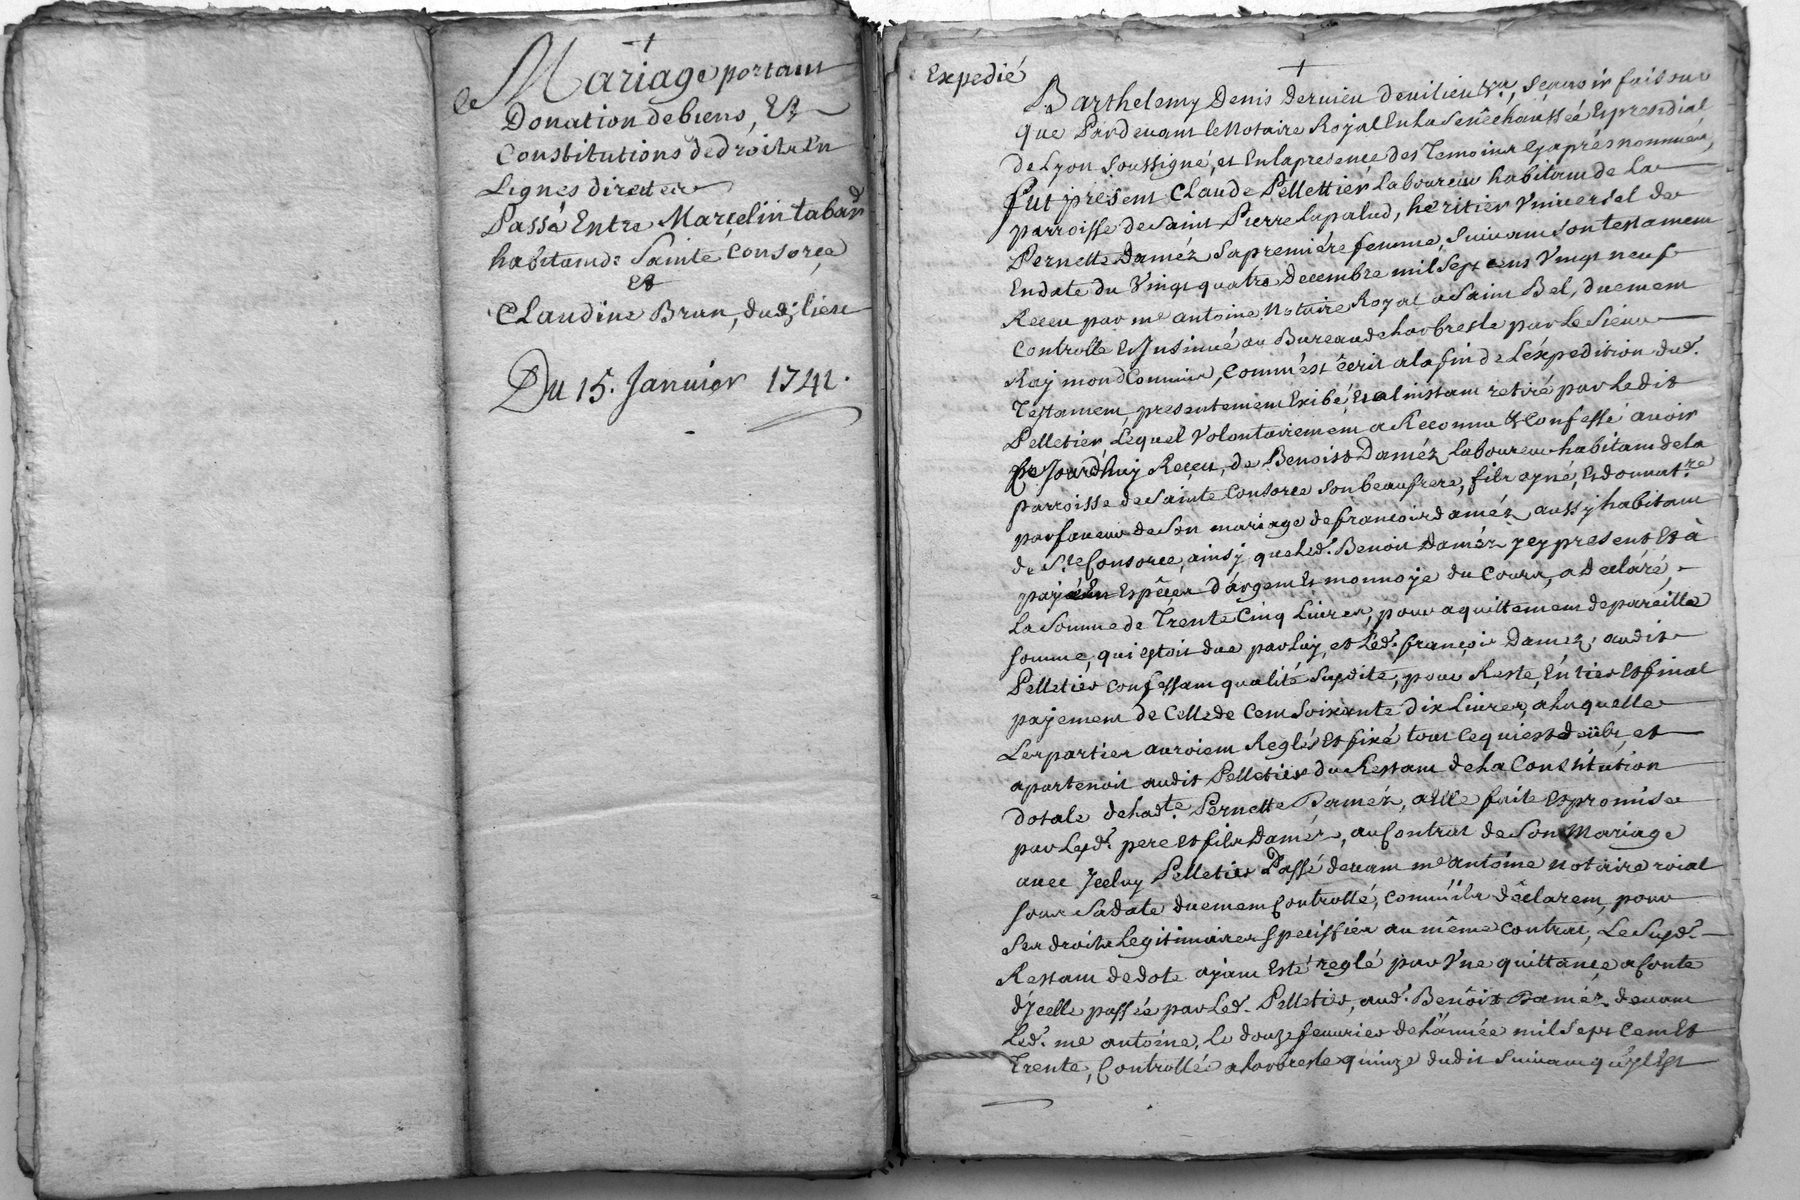 Mariage portant
Donation de biens, Et
Constitutions de droits En
Lignes directe
Passé Entre Marcelin tabard
habitand: Sainte Consorce
Et
Claudine Brun, dud; lieu
Du 15. Janvier 1741.
Expedié
Barthelemy Denis Dervieu Sçavoir faisons
que Pardevant le Notaire Royal En la Senêchaussée Et presidial
de Lyon Soussigné, et En la presence des Temoins cy aprés nommés,
fut présent Claude Pellettier Laboureur habitant de La
parroisse de Saint Pierre Lapalud, héritier Vniversel de
Pernette Daméz Sa premiére femme, Suivant Son testament
En date du Vingt quatre Decembre mil Sept cens Vingt neuf
Receu par me antoine Notaire Royal a Saint Bel, duement
Controllé Et Insinué au Bureau de Larbresle par Le Sieur
Raymond Commis, comm'est êcrit a la fin de L'éxpedition dud.
Testament presentement Exibé, Et a L'instant retiré par Ledit
Pelletier Lequel Volontairement a Reconnu Et Confessé avoir
Ce Jourd'huy Reçeu, de Benoist Daméz laboureur habitant de la
parroisse de Sainte Consorce Son beaufrere, fils ayné, Et donnat.re
par faveur de Son mariage de francois daméz aussy habitant
de S.te Consorce, ainsy que Led. Benoit Daméz icy present Et à
payé En Espêces d'argent Et monnoye du Cours, a declaré,
La Somme de Trente Cinq Livres, pour aquittement de pareille
Somme, qui estoit due par Luy, et Led. françois Damez, audit
Pelletier confessant qualité Susdite, pour Reste, Entier Et final
payement de Celle de Cent Soixante dix Livres, a laquelle
Les parties auroient Reglé Et fixé tout ce qui est dêüb, et
apartenoit audit Pelletier du Restant de La Constitution
dotale de Lad.te Pernette Daméz, a Elle faite Et promise
par Lesd. pere Et fils Daméz, au Contrat de Son Mariage
avec Jceluy Pelletier Passé devant me antoine Notaire roial
Sous Sa date duement Controllé, comm'ils dêclarent, pour
Ses droits Legitimaires Specifiés au même Contrat, Le Susd.
Restant de dote ayant Esté reglé par Vne quittance a Conte
d'Jcelle passée par Led. Pelletier, aud. Benôist Daméz devant
Led. me antoine, Le douze fevrier de L'année mil Sept Cent Et
Trente, Controllée a Larbresle quinze dudit Suivant qu'jl Est